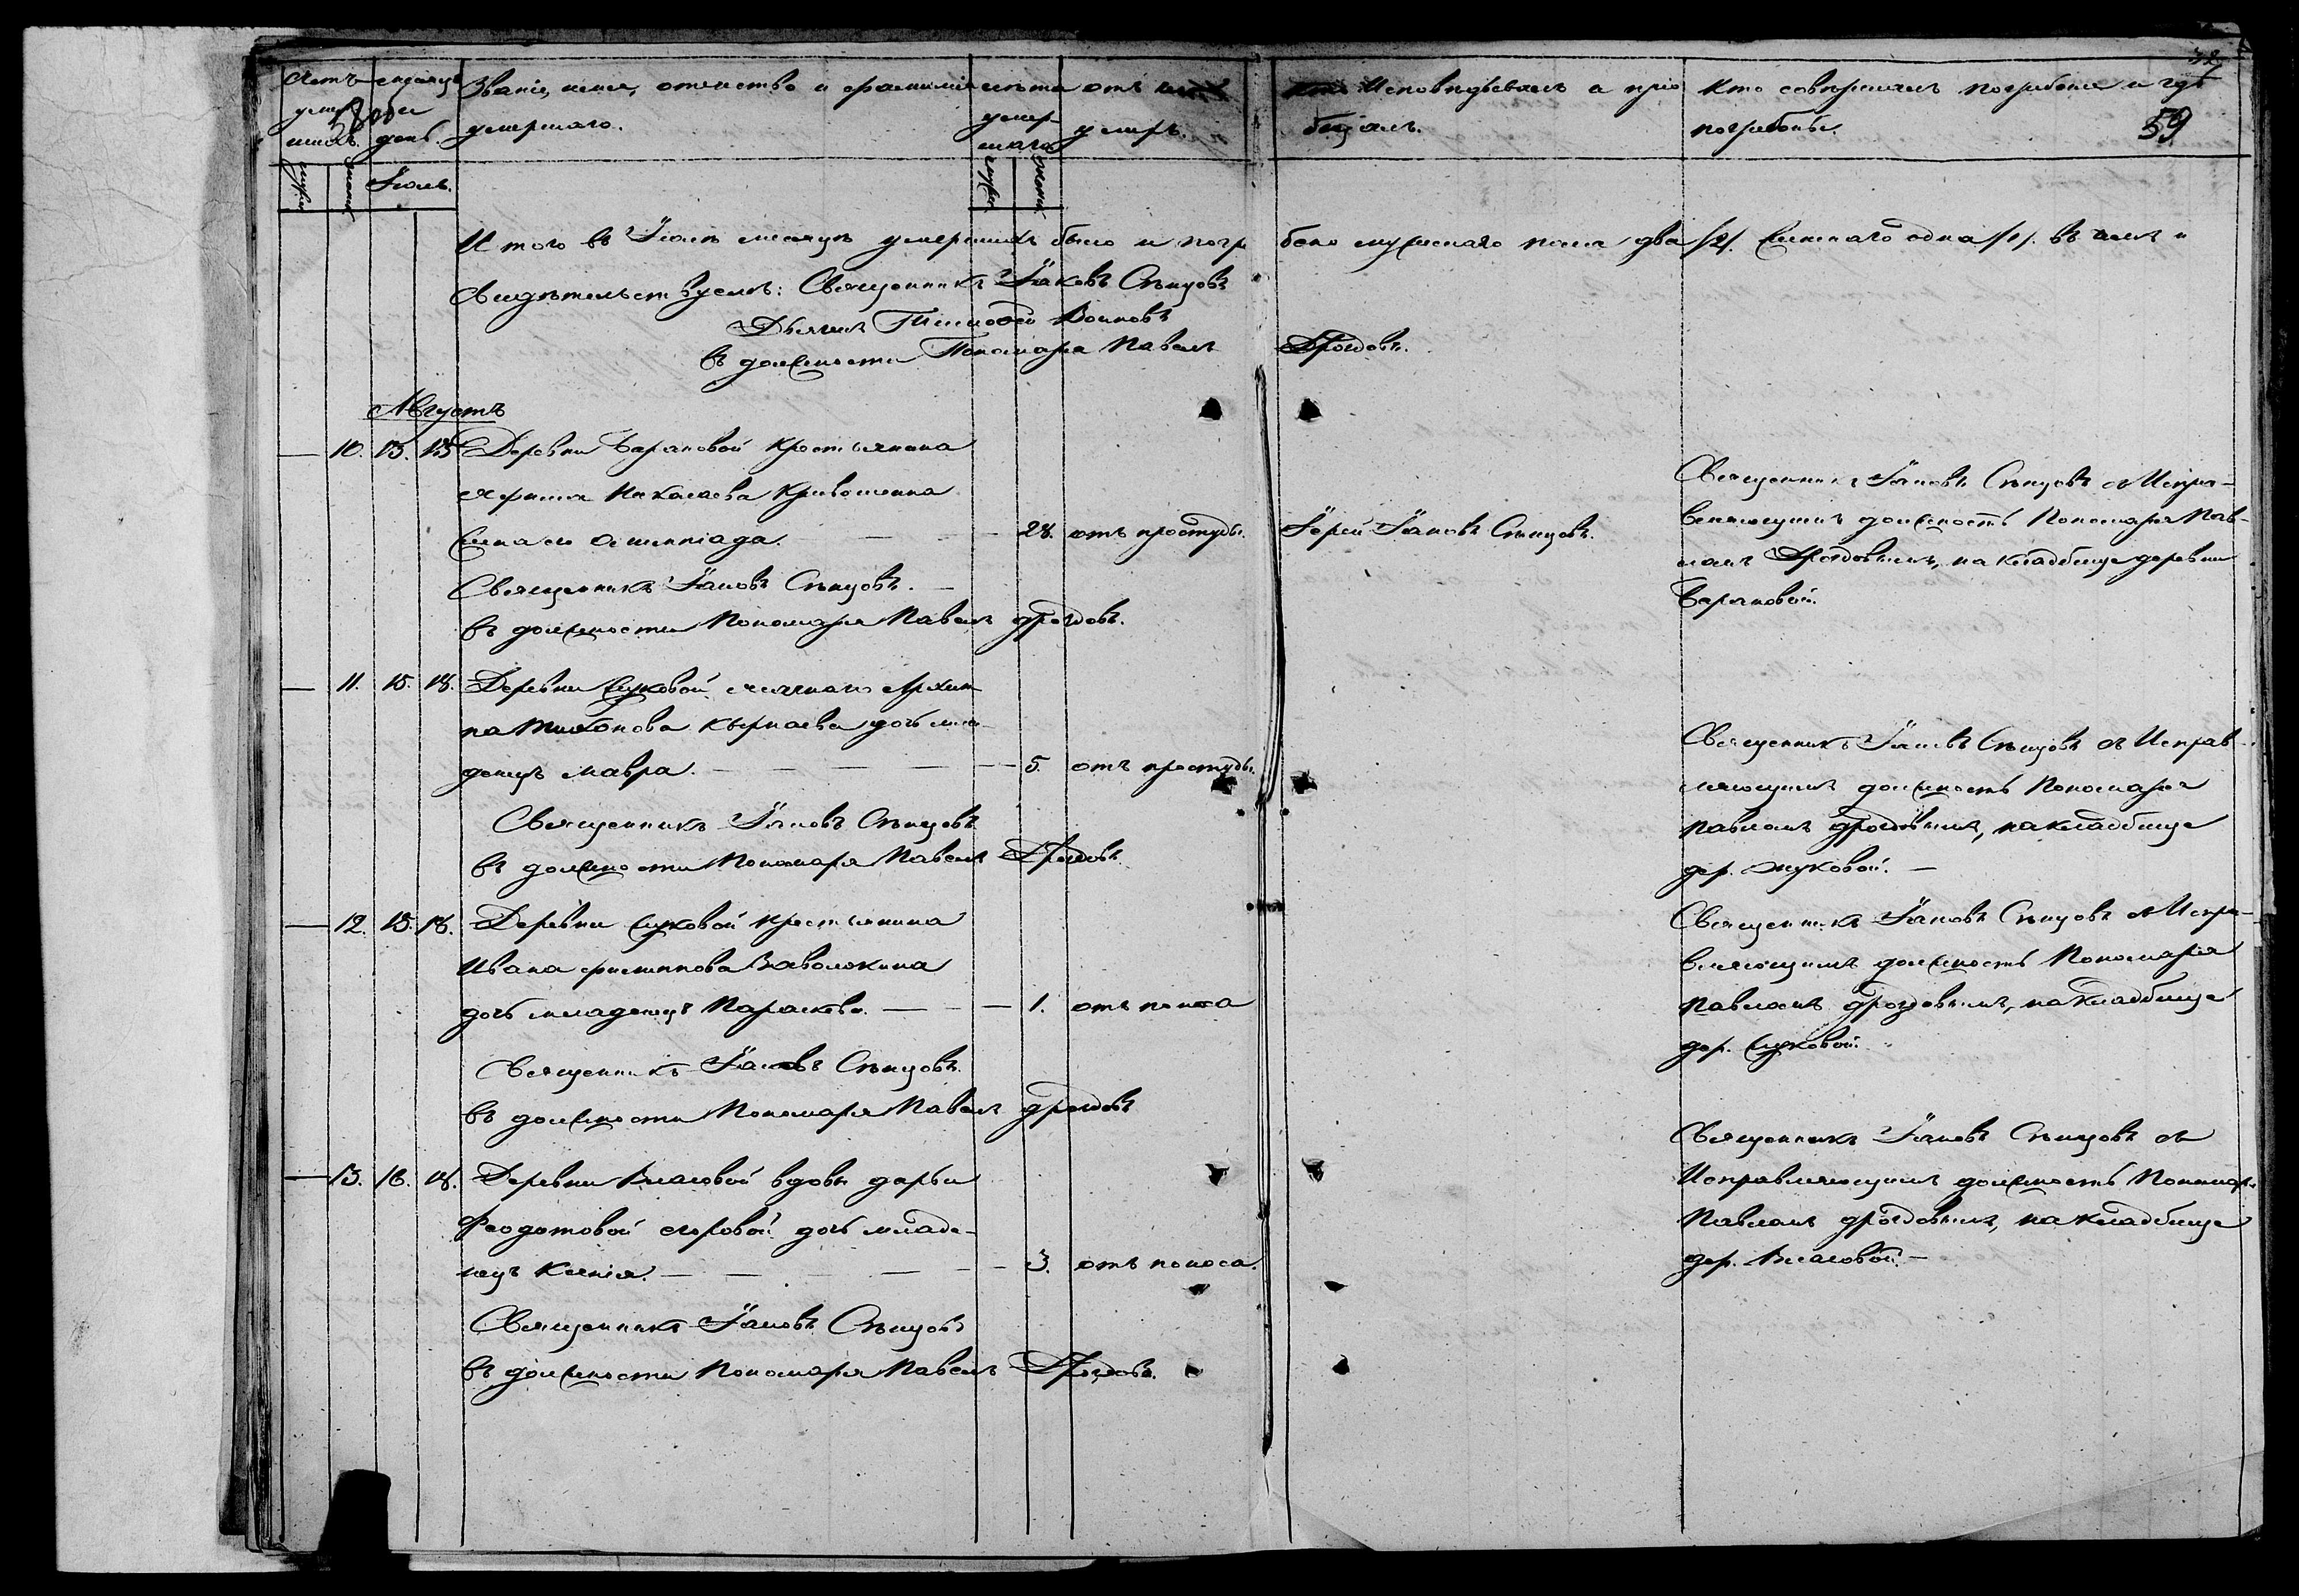 Счетъ умер шихъ. мѣсяцъ и день.
Званіе, имя, отчество и фамилія умершаго.
лѣта умер- шаго
отъ чего умеръ.
Кто Исповѣдывалъ и прі общалъ.
Кто совершалъ погребеніе и гдѣ погребены.
59
Іюль.
И того въ Іюлѣ месяцѣ умершихъ было и погре бено мужескаго пола два /2/. Женскаго одна /1/. въ чемъ и
Свидѣтельствуемъ: Священникъ Іаковъ Спѣцовъ
Дьячекъ Воиновъ
въ должности Пономаря Павелъ Дроздовъ.
Августъ
10. 13. 15 Деревни Барановой крестьянина
Николаева Кривошеина
жена 28. отъ простуды. Іерей Іаковъ Спѣцовъ.
Священникъ Іаковъ Спѣцовъ.
въ должности Пономаря Павелъ Дроздовъ.
Священникъ Іаковъ Спѣцовъ съ Испра-
вляющимъ должность Пономаря Пав-
ломъ Дроздовымъ, на кладбище деревни
Барановой.
11. 15. 18. Деревни Жуковой Архип-
па дочь мла-
денцъ Мавра. 5. отъ простуды.
Священникъ Іаковъ Спѣцовъ
въ должности Пономаря Павелъ Дроздовъ.
Священникъ Іаковъ Спѣцовъ съ Исправ-
ляющимъ должность Пономаря
Павломъ Дроздовымъ, на кладбище
дер. Жуковой.
12. 15. 18. Деревни Жуковой крестьянина
Ивана Филиппова Заволокина
дочь младенцъ Параскева. 1. отъ поноса
Священникъ Іаковъ Спѣцовъ.
въ должности Пономаря Павелъ Дроздовъ
Священникъ Іаковъ Спѣцовъ съ Испра-
вляющимъ должность Пономаря
Павломъ Дроздовымъ, на кладбище
дер. Жуковой.
13. 16. 18. Деревни Власовой вдовы Дарьи
Феодотовой дочь младе-
нцъ Ксенія. 3. отъ поноса.
Священникъ Іаковъ Спѣцовъ
въ должности Пономаря Павелъ Дроздовъ.
Священникъ Іаковъ Спѣцовъ съ
Исправляющимъ должность Пономаря
Павломъ Дроздовымъ, на кладбище
дер. Власовой.